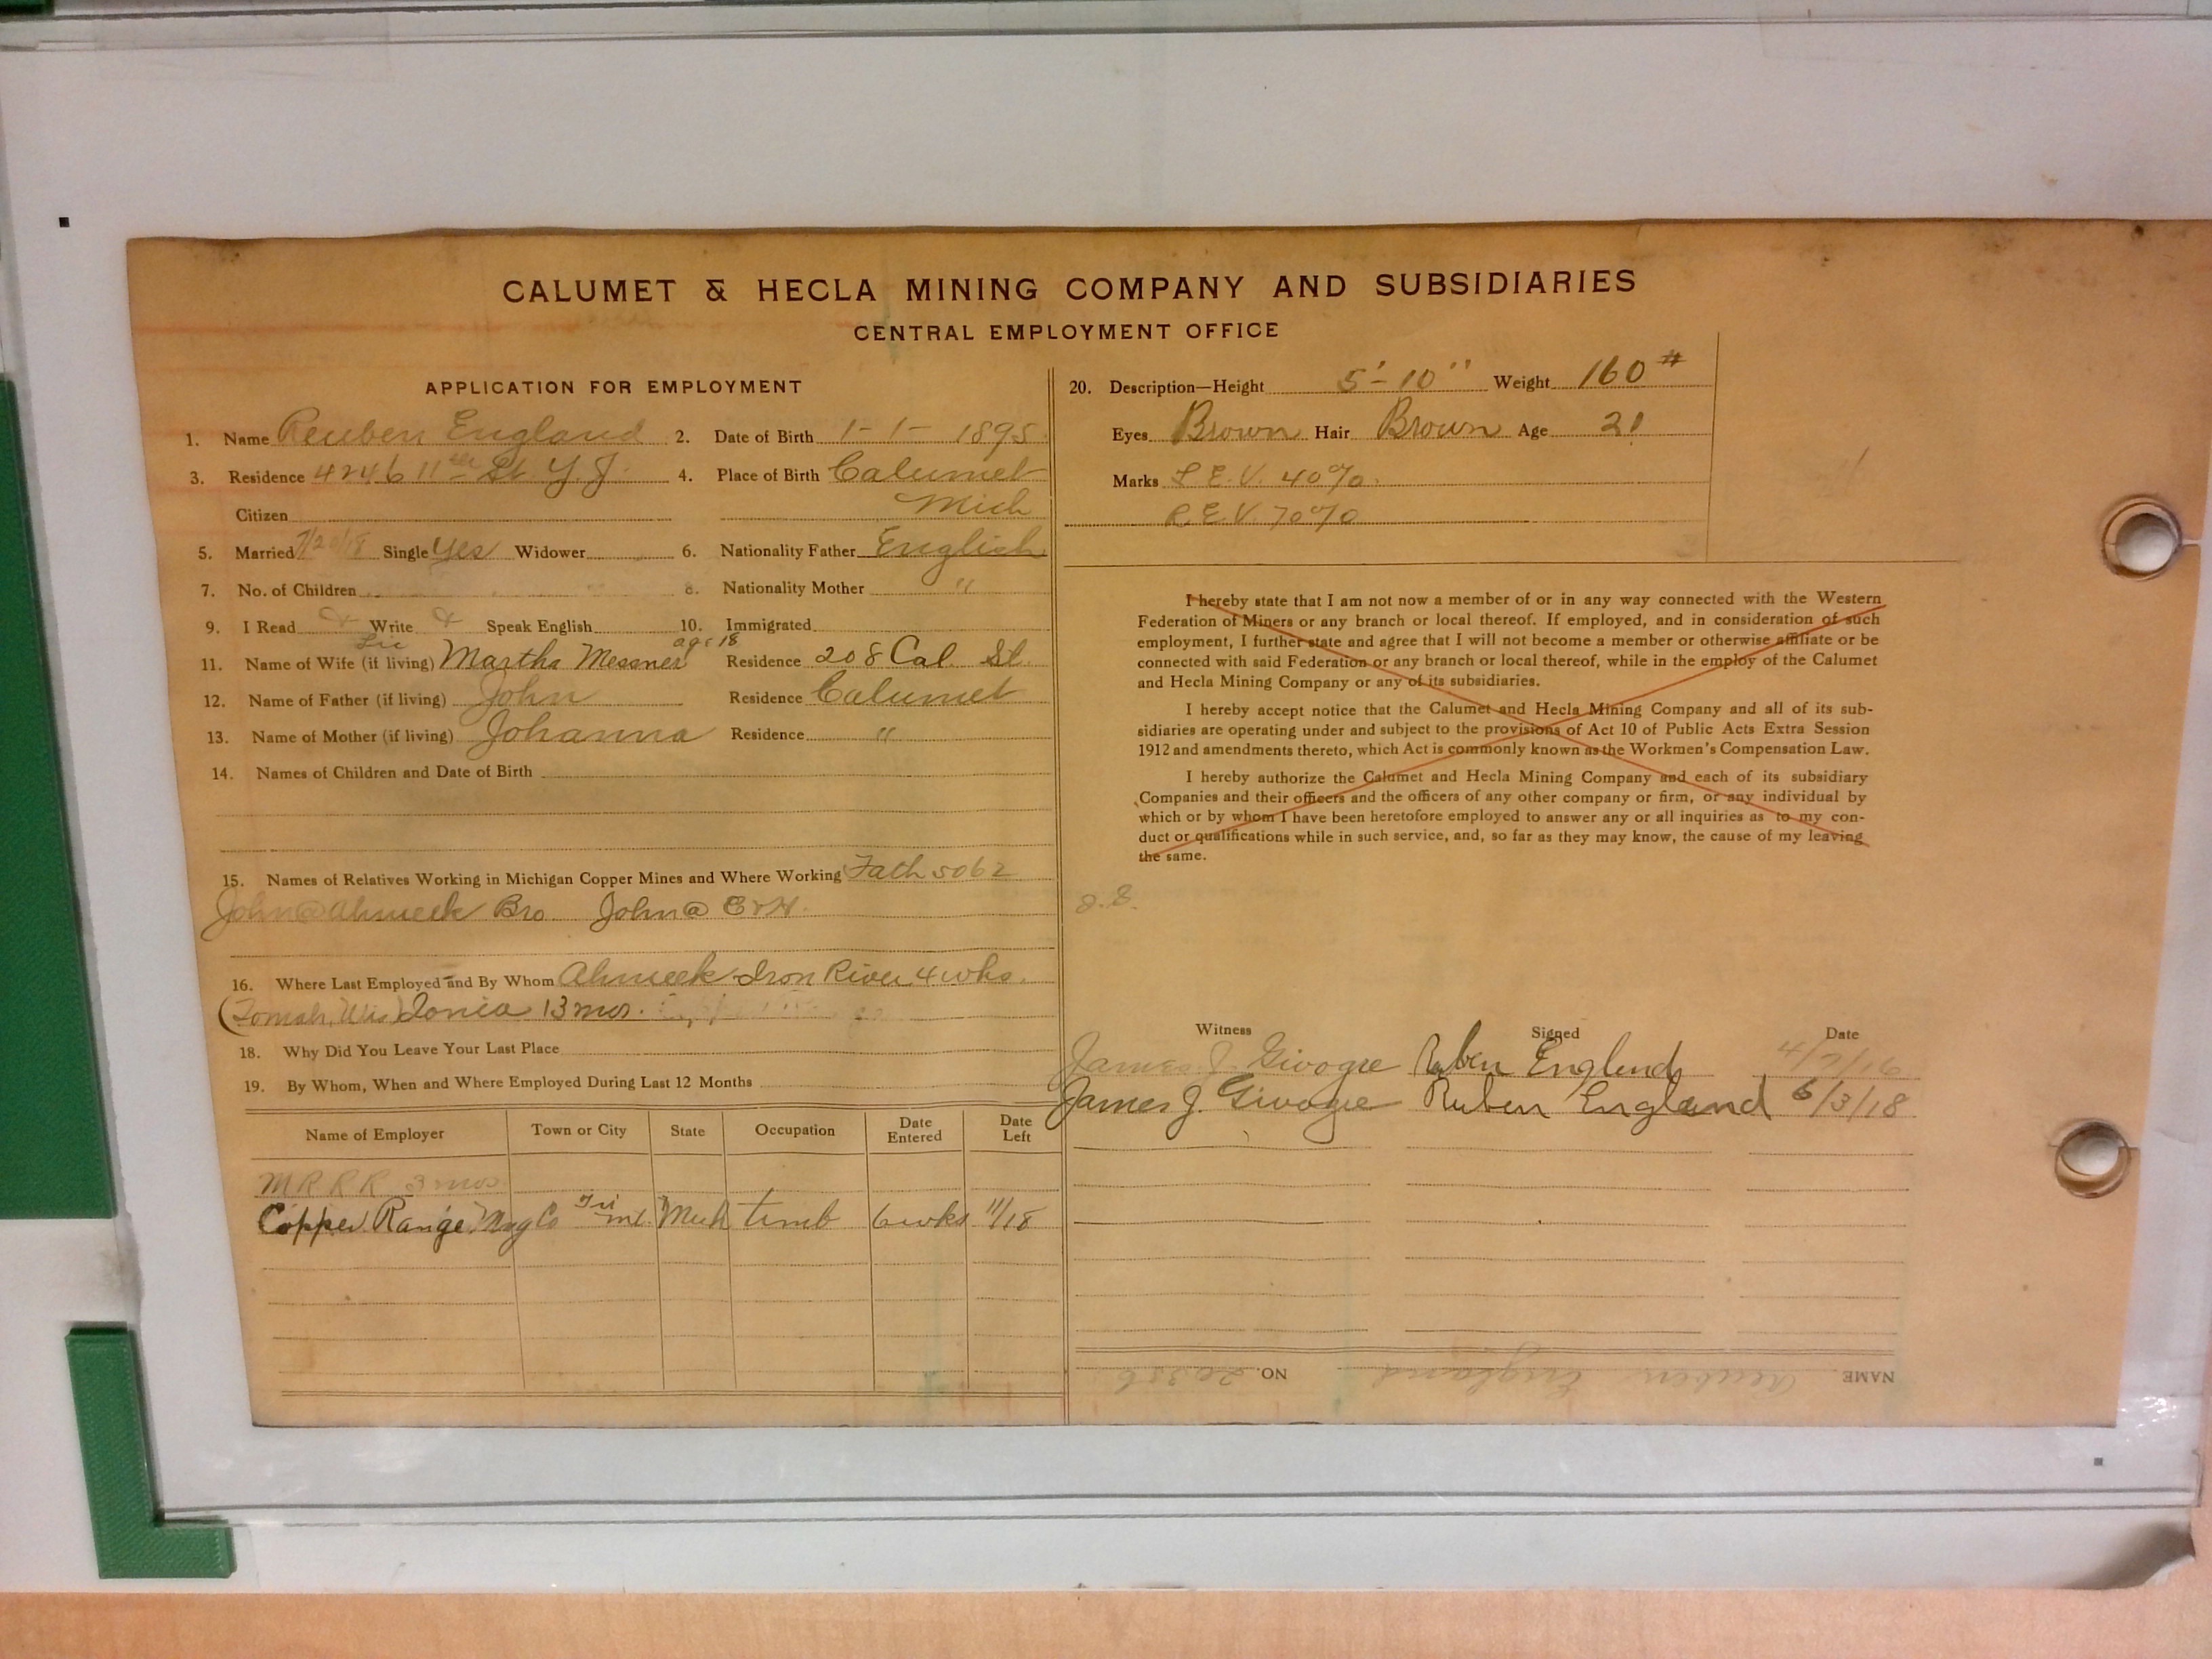 CALUMET & HECLA MINING COMPANY AND SUBSIDIARIES
CENTRAL EMPLOYMENT OFFICE
APPLICATION FOR EMPLOYMENT
1. Name Reuben England 2. Date of Birth 1-1-1895
3. Residence 4246 11th St. Y.J. 4. Place of Birth Calumet
Citizen Mich
5. Married 7/20/18 Single Yes Widower 6. Nationality Father English
7. No. of Children 8. Nationality Mother "
9. I Read Write Speak English 10. Immigrated
Lic age 18
11. Name of Wife (if living) Martha Messner Residence 208 Cal. St.
12. Name of Father (if living) John Residence Calumet
13. Name of Mother (if living) Johanna Residence "
14. Names of Children and Date of Birth
15. Names of Relatives Working in Michigan Copper Mines and Where Working Fath 5062
John @ Ahmeek Bro John @ C & H.
16. Where Last Employed and By Whom Ahmeek Iron River 4 wks.
(Tomah, Wis) Ionia 13 mos.
18. Why Did You Leave Your Last Place
19. By Whom, When and Where Employed During Last 12 Months
Name of Employer Town or City State Occupation Date Entered Date Left
M R R R 3 mos
Copper Range Mng Co Tri mt. Mich timb 6 wks 11/18
20. Description—Height 5'-10" Weight 160#
Eyes Brown Hair Brown Age 21
Marks L.E.V. 40%.
R.E.V. 70%
I hereby state that I am not now a member of or in any way connected with the Western
Federation of Miners or any branch or local thereof. If employed, and in consideration of such
employment, I further state and agree that I will not become a member or otherwise affiliate or be
connected with said Federation or any branch or local thereof, while in the employ of the Calumet
and Hecla Mining Company or any of its subsidiaries.
I hereby accept notice that the Calumet and Hecla Mining Company and all of its sub-
sidiaries are operating under and subject to the provisions of Act 10 of Public Acts Extra Session
1912 and amendments thereto, which Act is commonly known as the Workmen's Compensation Law.
I hereby authorize the Calumet and Hecla Mining Company and each of its subsidiary
Companies and their officers and the officers of any other company or firm, or any individual by
which or by whom I have been heretofore employed to answer any or all inquiries as to my con-
duct or qualifications while in such service, and, so far as they may know, the cause of my leaving
the same.
Witness Signed Date
James J. Givogre Ruben Englend 4/7/16
James J. Givogre Ruben England 6/3/18
NAME Reuben England NO. 20356